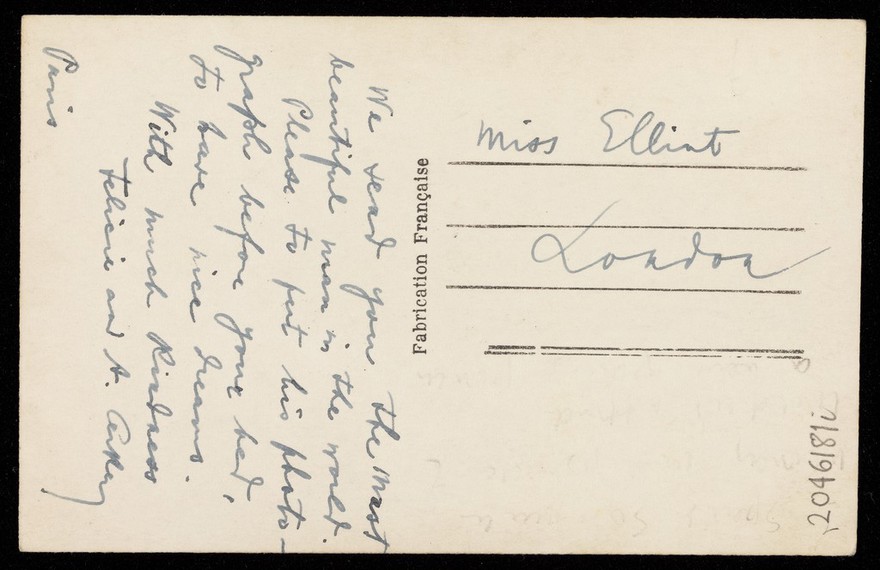 We send you the most
beautiful man in the world.
Please to put his photo-
graph before your bed,
to have nice dreams.
With much kindness
Felicie and A.
Paris
Fabrication Française
Miss Elliot
London